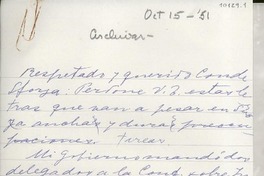 10129.1
Oct 15-'51
Archivar-
Respetado y querido Conde
Sforza. Perdone V. E. estas le
tras que van a pesar en su
ya ancha y dura
tarea.
Mi Gobierno mandó dos
delegados a la Conf. sobre